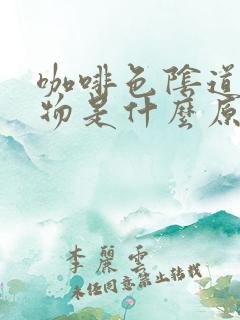 咖啡色陰道
物是什麼原
李麗雲
未经同意禁止转载